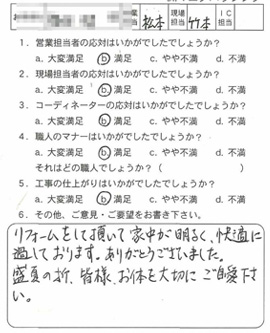 業 担当 松本 現場 担当 竹本 IC 担当
1. 営業担当者の応対はいかがでしたでしょうか?
a. 大変満足 b. 満足 c. やや不満 d. 不満
2. 現場担当者の応対はいかがでしたでしょうか?
a. 大変満足 b. 満足 c. やや不満 d. 不満
3. コーディネーターの応対はいかがでしたでしょうか?
a. 大変満足 b. 満足 c. やや不満 d. 不満
4. 職人のマナーはいかがでしたでしょうか?
a. 大変満足 b. 満足 c. やや不満 d. 不満
それはどの職人でしょうか?( )
5. 工事の仕上がりはいかがでしたでしょうか?
a. 大変満足 b. 満足 c. やや不満 d. 不満
6. その他、ご意見・ご要望をお書き下さい。
リフォームをして頂いて家中が明るく、快適に
過しております。ありがとうございました。
盛夏の折、皆様、お体を大切に ご自愛下さ
い。